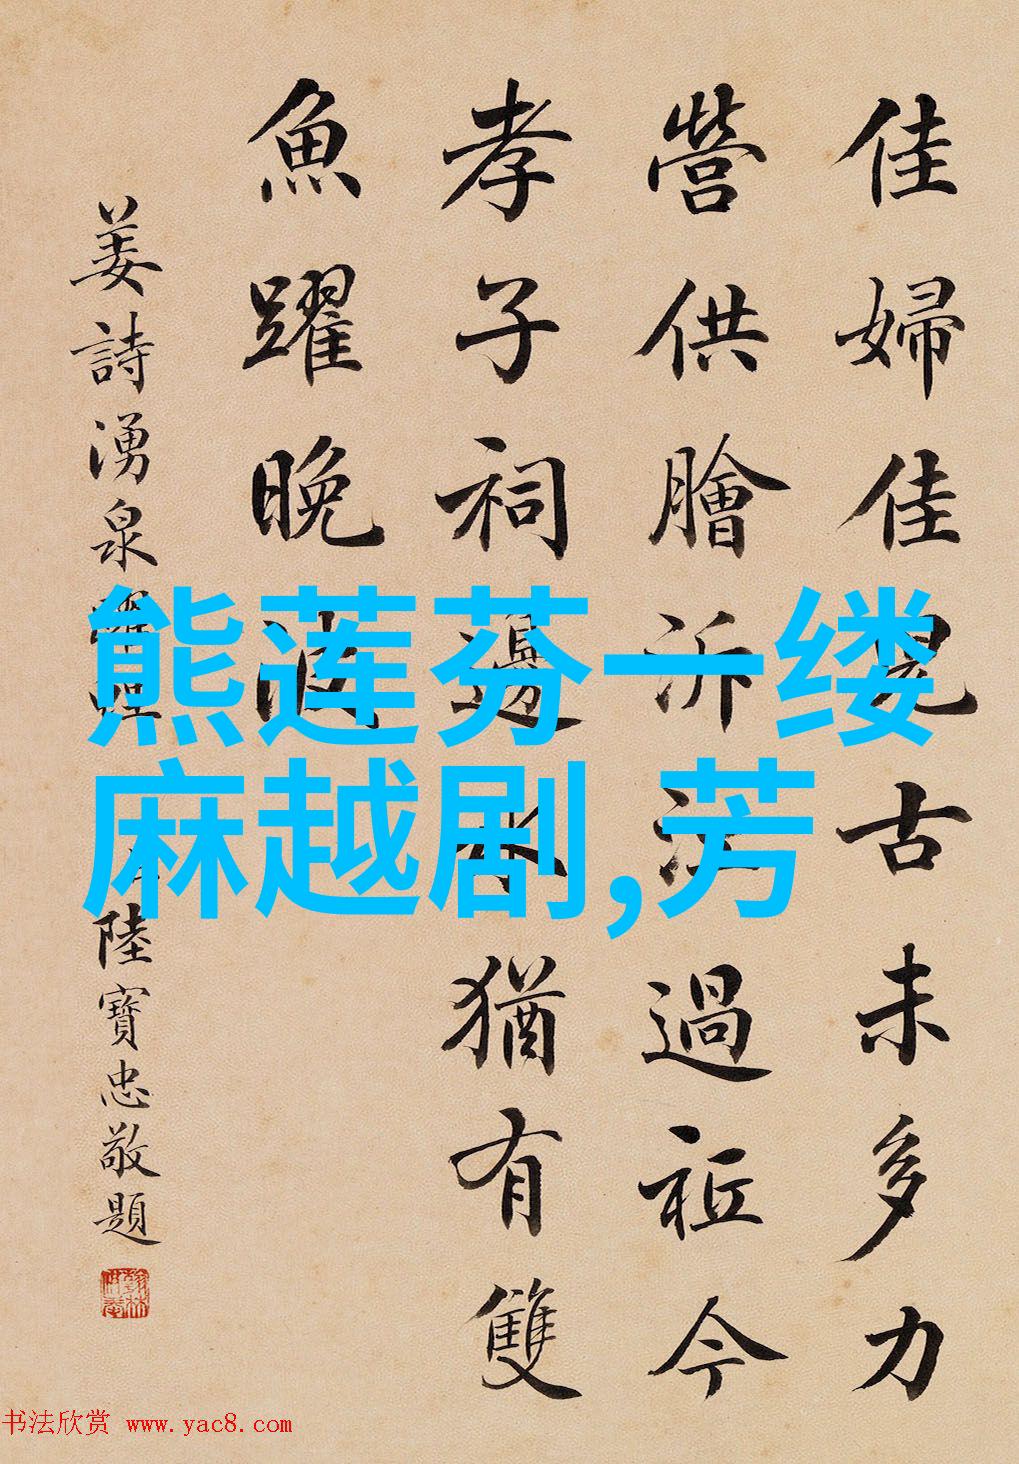 佳婦佳兒古未多力
營供膾泝江過祗今
孝子祠邊水猶有雙
魚躍晚波
姜詩湧泉
陸寶忠敬題
熊莲芬一缕
麻越剧,芳
书法欣赏 www.yac8.com